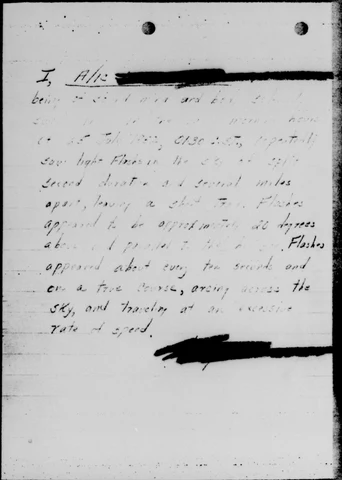 I, A/1c
being of sound mind and
morning hours
of 25 July 1952, 0130
saw light Flashes in the sky of split
second duration and several miles
apart, leaving a short trail. Flashes
appeared to be approximately 20 degrees
above and
Flashes
appeared about every ten seconds and
on a true course, arcing across the
sky, and traveling at an excessive
rate of speed.